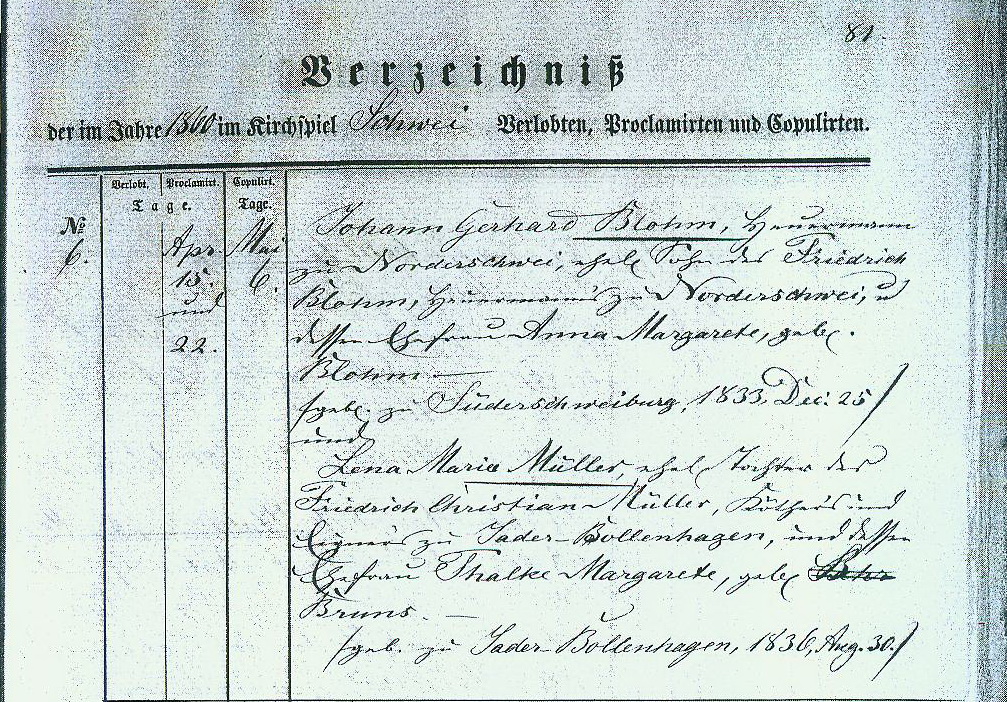 81.
Verzeichniß
der im Jahre 1860 im Kirchspiel Schwei Verlobten, Proclamirten und Copulirten.
Verlobt. Proclamirt. Copulirt.
Tage. Tage.
№
6.
Apr. 15. und 22.
Mai 6.
Johann Gerhard Blohm, Heuermann
zu Norderschwei, ehel. Sohn des Friedrich
Blohm, Heuermanns zu Norderschwei, u
dessen Ehefrau Anna Margarete, geb.
Blohm —
/geb. zu Süderschweiburg, 1833, Dec. 25/
und
Lena Marie Müller, ehel. Tochter des
Friedrich Christian Müller, Köthers und
Eigners zu Jader-Bollenhagen, und dessen
Ehefrau Thalke Margarete, geb.
Bruns. —
/geb. zu Jader-Bollenhagen, 1836, Aug. 30./